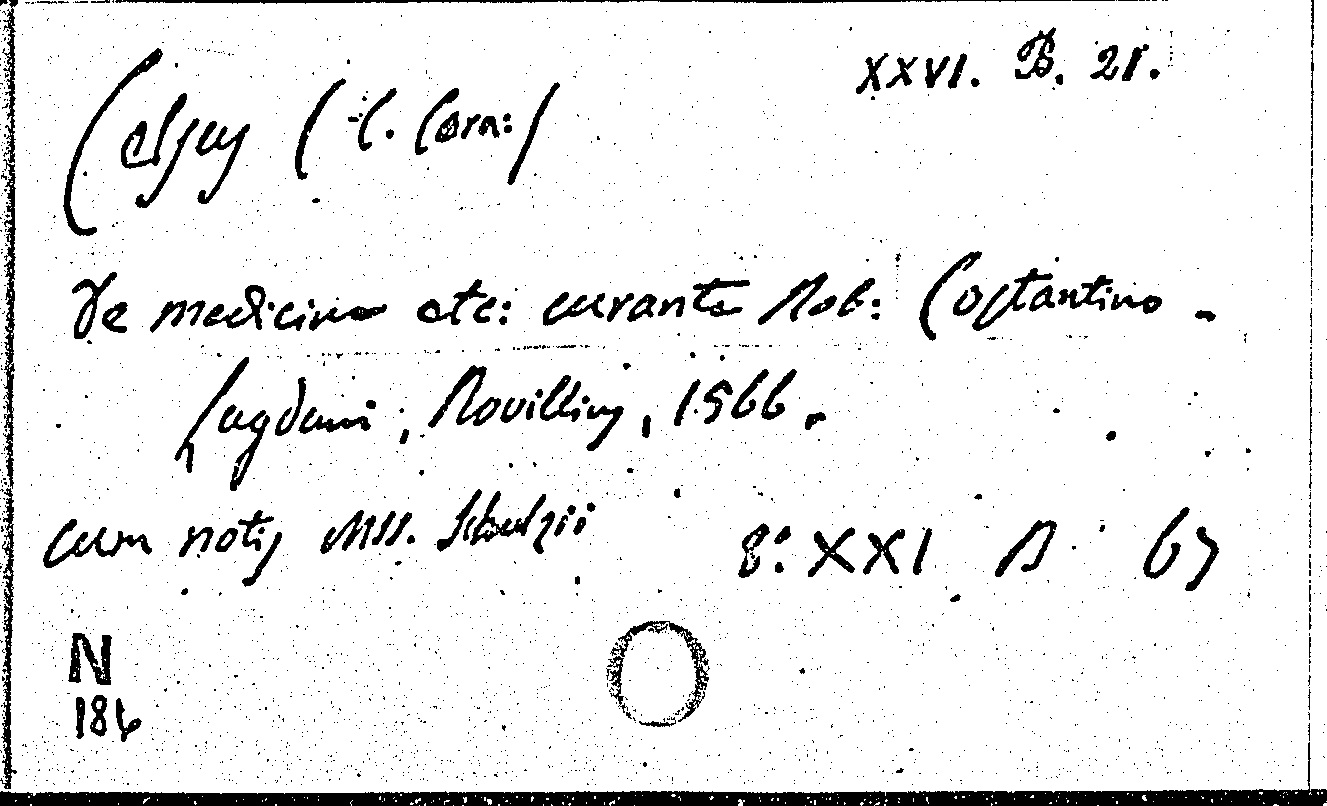 XXVI. B. 21.
Celsus (C. Corn:)
De medicina etc: curante Rob: Costantino -
Lugduni, Rovillius, 1566.
cum notis MSS. Schulzii 8° XXI B 67
N
186